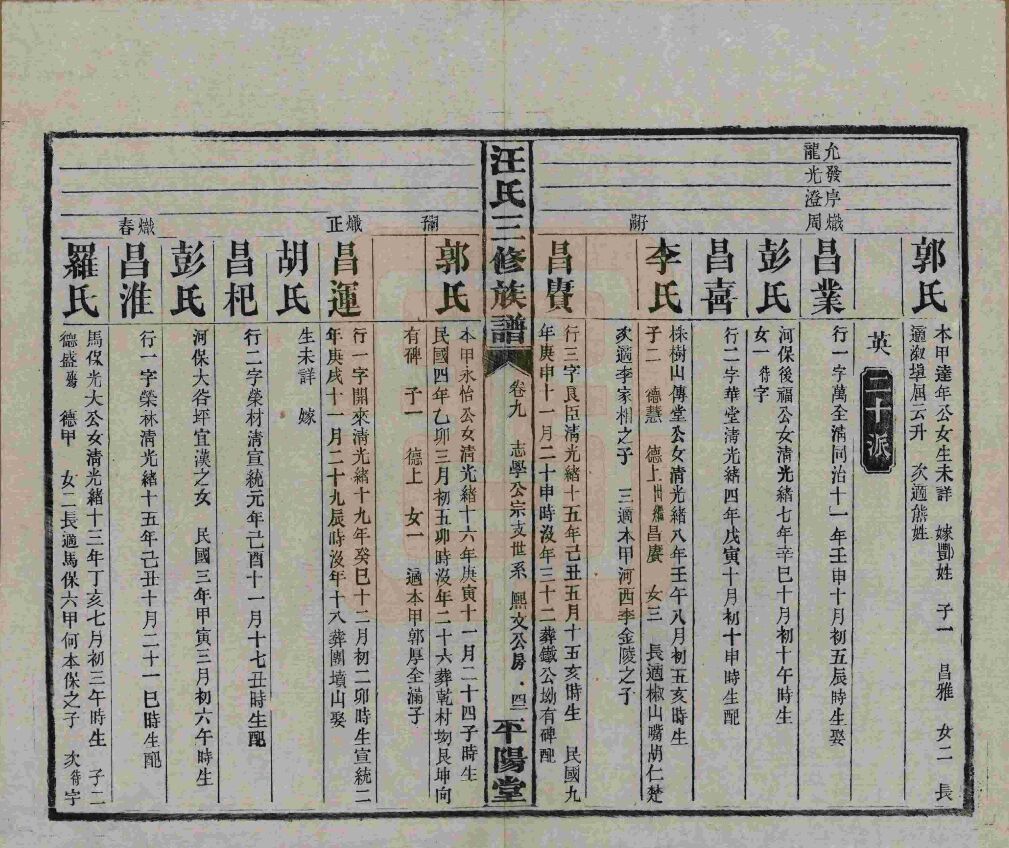 允發序熾
龍光澄周
郭氏
本甲達年公女生未詳 嫁酆姓 子一 昌雅 女二 長
適淑埠屈云升 次適熊姓
英
二十派
昌業
行一字萬全淸同治十一年壬申十月初五辰時生娶
彭氏
河保後福公女淸光緒七年辛巳十月初十午時生
女一 待字
昌喜
行二字華堂淸光緒四年戊寅十月初十申時生配
李氏
株樹山傳堂公女淸光緒八年壬午八月初五亥時生
子二 德慧 德上出繼昌賡 女三 長適椒山嘴胡仁楚
次適李家相之子 三適本甲河西李金陵之子
嗣
昌賡
行三字良臣淸光緒十五年己丑五月十五亥時生 民國九
年庚申十一月二十申時沒年三十二葬鐵公坳有碑配
汪氏三修族譜
卷九
志學公宗支世系 熙文公房
四二
平陽堂
郭氏
本甲永怡公女淸光緒十六年庚寅十一月二十四子時生
民國四年乙卯三月初五卯時沒年二十六葬乾村坳艮坤向
有碑 子一 德上 女一 適本甲郭厚全滿子
熾正
昌運
行一字開來淸光緒十九年癸巳十二月初二卯時生宣統二
年庚戌十一月二十九辰時沒年十八葬團墳山娶
胡氏
生未詳 嫁
昌杷
行二字榮材淸宣統元年己酉十一月十七丑時生配
彭氏
河保大㟖坪宜漢之女 民國三年甲寅三月初六午時生
熾春
昌淮
行一字榮林淸光緒十五年己丑十月二十一巳時生配
羅氏
馬保光大公女淸光緒十三年丁亥七月初三午時生 子二
德盛 德甲 女二長適馬保六甲何本保之子 次待字